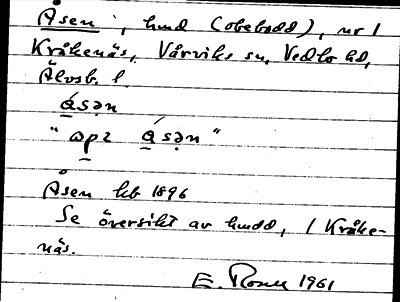 Åsen, hmd (obebodd), nr 1
Kråkenäs, Vårviks sn, Vedbo hd,
Älvsb. l.
åsən
" åsən "
Åsen kb 1896
Se översikt av hmdd, 1 Kråke-
näs.
E. 1961